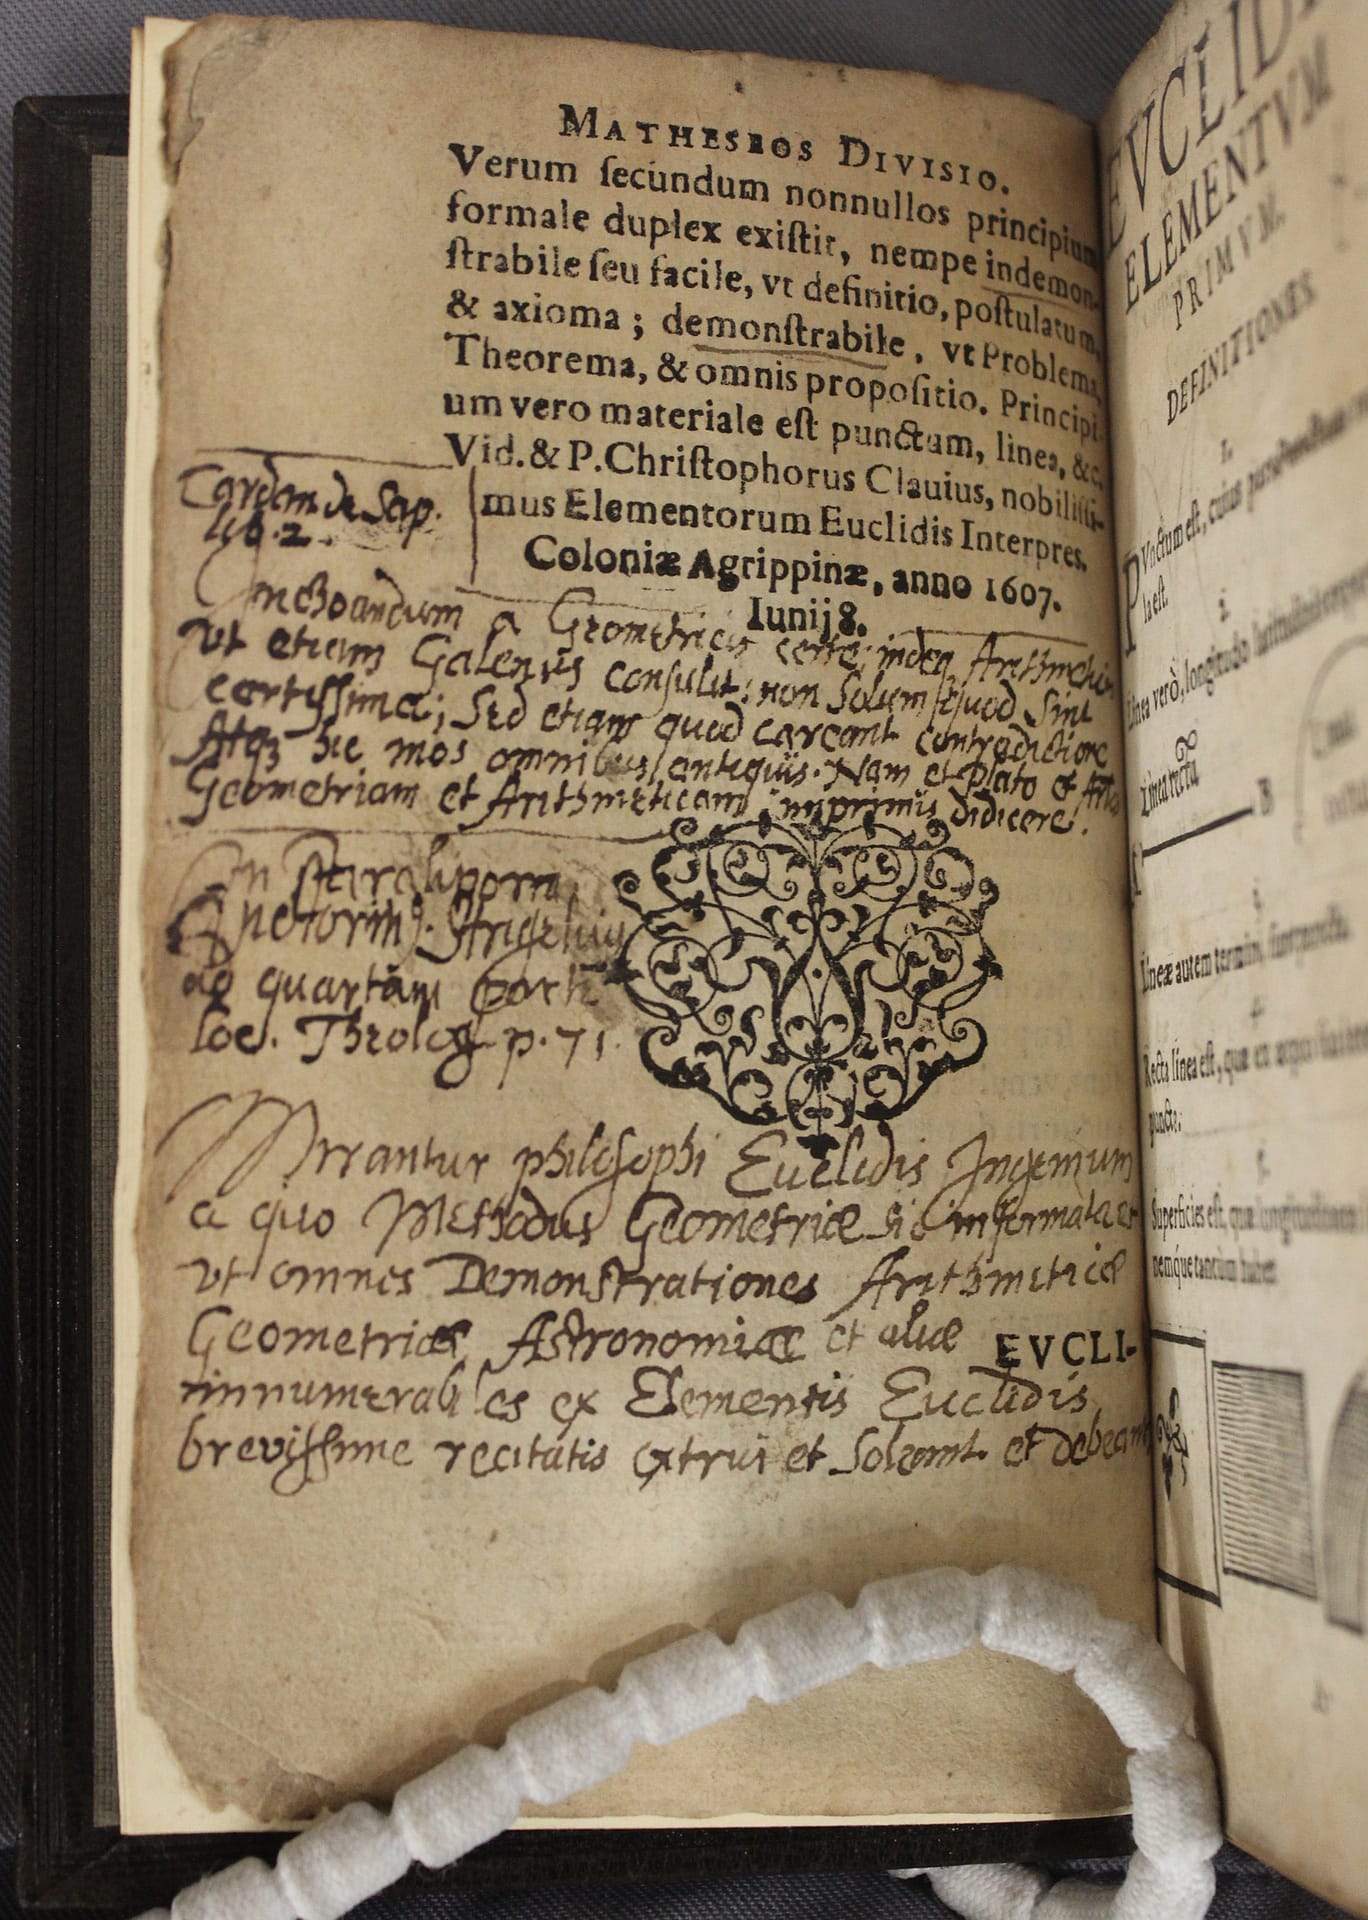 MATHESEOS DIVISIO.
Verum ſecundum nonnullos principium
formale duplex exiſtit, nempe indemon-
ſtrabile ſeu facile, vt definitio, poſtulatum,
& axioma; demonſtrabile, vt Problema,
Theorema, & omnis propoſitio. Principi-
um vero materiale eſt punctum, linea, &c.
Vid. & P. Chriſtophorus Clauius, nobiliſſi-
mus Elementorum Euclidis Interpres.
Coloniæ Agrippinæ, anno 1607.
Iunij 8.
Cardam de Sap.
lib. 2.
Inchoandum a Geometricis certe, indeq Arithmeticis
ut etiam Galenus consulit: non Solum quod Sint
certissimæ; Sed etiam quod careant contradictione
Atq3 hic mos omnibus antiquis. Nam et Plato et
Geometriam et Arithmeticam imprimis didicere.
In Paralipom.
ad quartam Part
loc. Theolog p. 71.
Mirantur philosophi Euclidis Ingenium
a quo Methodus Geometriæ sic informata
vt omnes Demonstrationes Arithmeticæ
Geometriæ, Astronomiæ et aliæ
innumerabiles ex Elementis Euclidis
brevissime recitatis et Soleant et debeant
EVCLI-
EVCLIDI
ELEMENTVM
PRIMVM.
DEFINITIONES
1.
PVnctum eſt, cuius pars
la eſt.
2.
Linea verò, longitudo latitudinis
Linea recta
B
3.
Lineæ autem termini, ſunt puncta.
4.
Recta linea eſt, quæ ex æquo ſua
puncta.
5.
Superficies eſt, quæ longitudinem
nemque tantùm habet